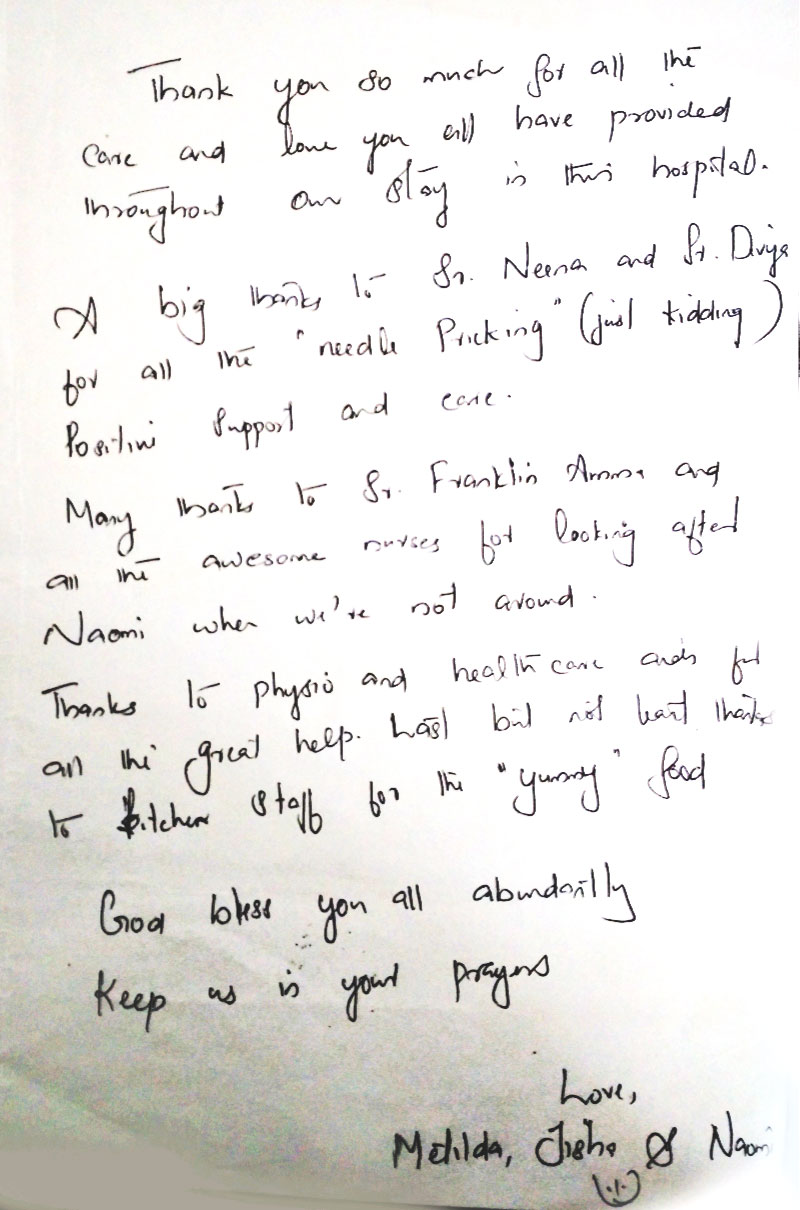 Thank you so much for all the
care and love you all have provided
throughout our stay in this hospital.
A big thanks to Sr. Neena and Sr. Divya
for all the "needle Pricking" (just kidding)
Positive support and care.
Many thanks to Sr. Franklin Amma and
all the awesome nurses for looking after
Naomi when we're not around.
Thanks to physio and health care for
all the great help. Last but not least thanks
to kitchen staff for the "yummy" food
God bless you all abundantly
Keep us in your prayers
Love,
Metilda, Jisha & Naomi